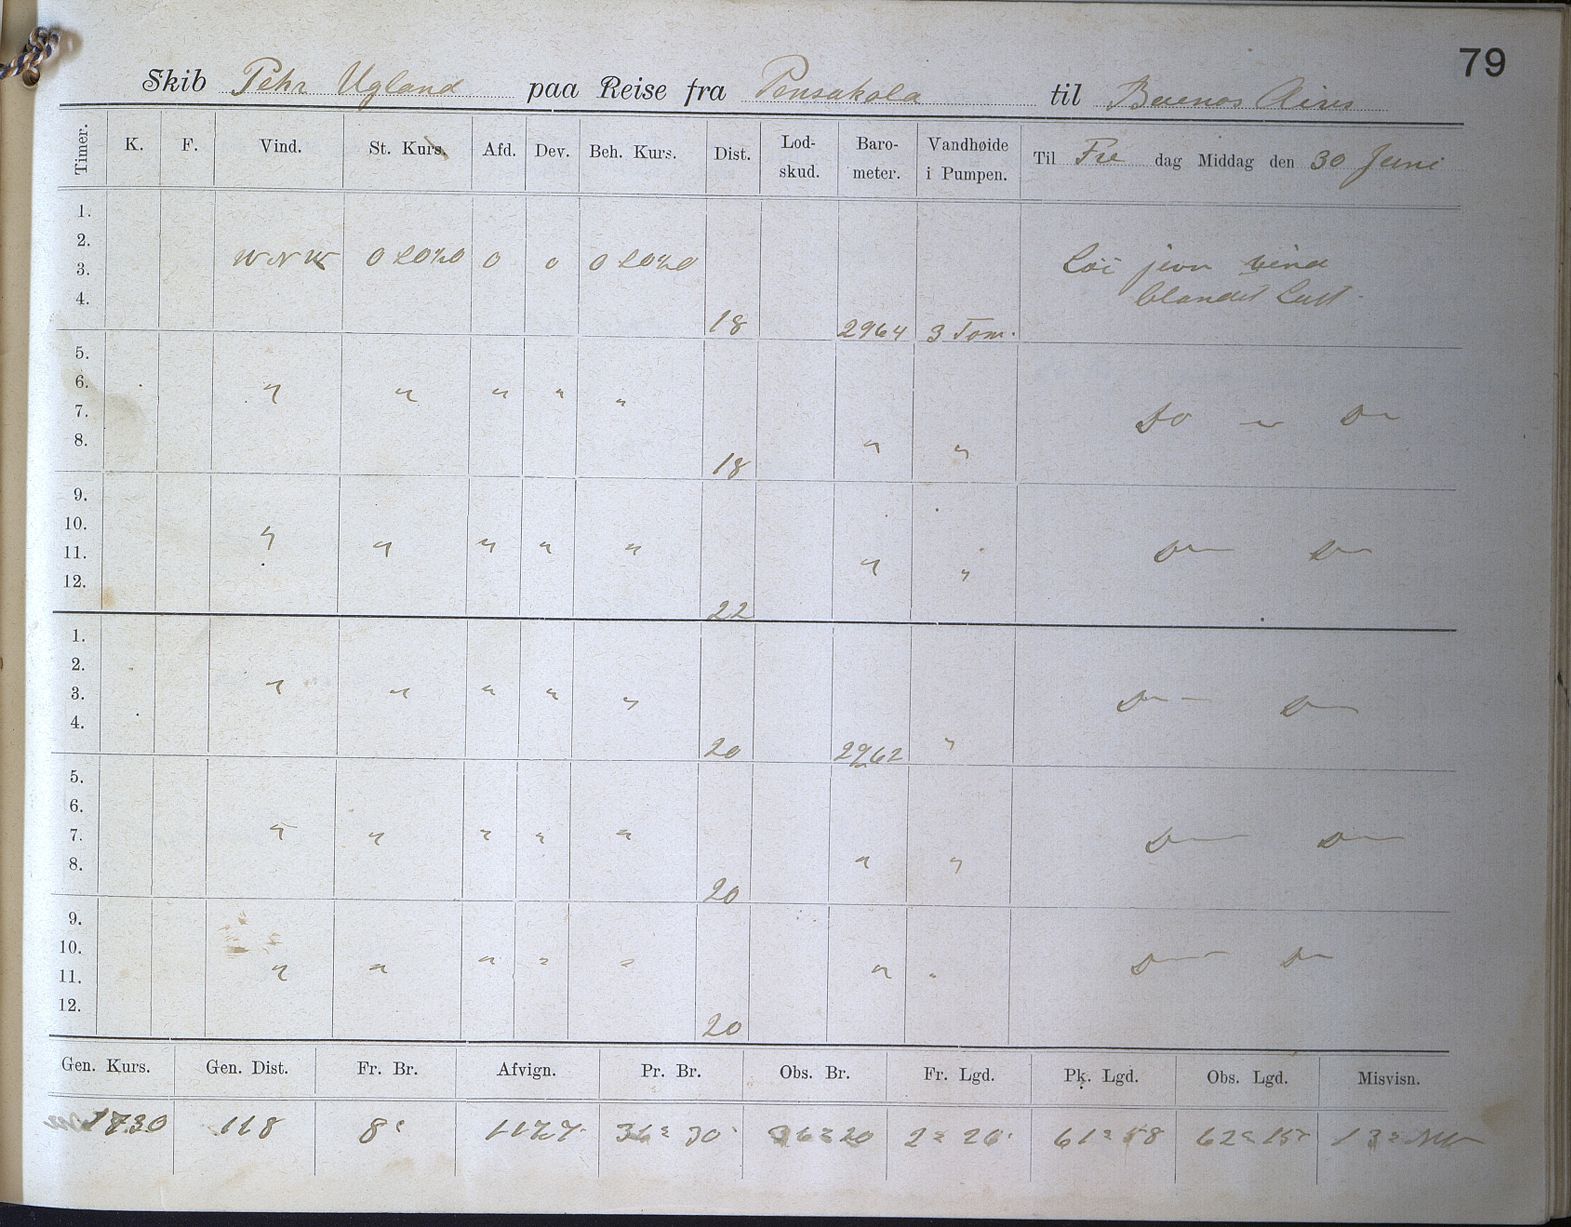 79
Skib Pehr Ugland paa Reise fra Pensakola til Buenos Aires
Timer. K. F. Vind. St. Kurs. Afd. Dev. Beh. Kurs. Dist. Lod-skud. Baro-meter. Vandhøide i Pumpen. Til Fre dag Middag den 30 Juni
1.
2.
3. WNW O 0 0 O Löi jevn vind
4. 18 2964 3 Tom. blandet Luft.
5.
6. " " " " "
7. Do " Do
8. 18 " "
9.
10. " " " " "
11. " " Do Do
12. 22
1.
2.
3. " " " " " Do Do
4. 20 2962 "
5.
6.
7. " " " " " Do Do
8. 20 " "
9.
10.
11. " " " " " " " Do Do
12. 20
Gen. Kurs. Gen. Dist. Fr. Br. Afvign. Pr. Br. Obs. Br. Fr. Lgd. Pk. Lgd. Obs. Lgd. Misvisn.
118 8' 36° 30' 36° 20 2° 26' 61° 58 62° 15' 13° NW